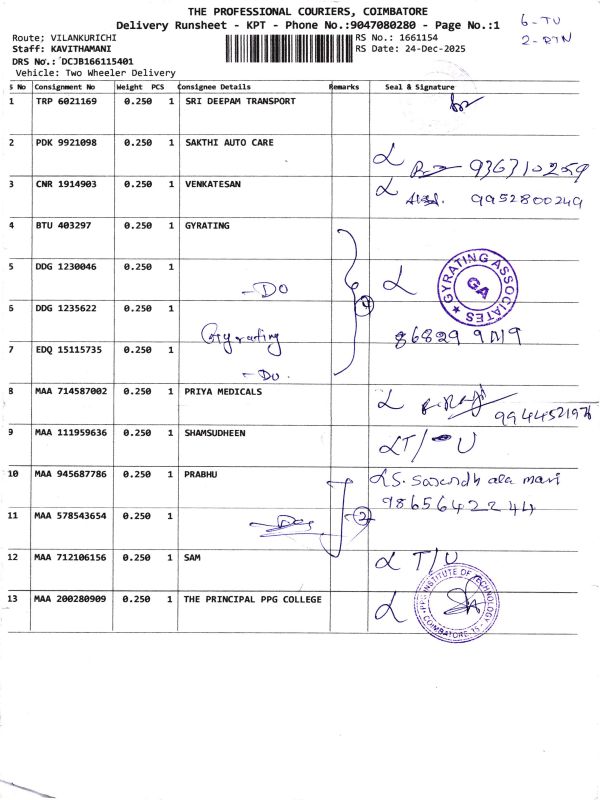 THE PROFESSIONAL COURIERS, COIMBATORE
Delivery Runsheet - KPT - Phone No.:9047080280 - Page No.:1
6-TU
2-RTN
Route; VILANKURICHI
RS No.: 1661154
Staff: KAVITHAMANI
RS Date: 24-Dec-2025
DRS No.: DCJB166115401
Vehicle: Two Wheeler Delivery
S No Consignment No Weight PCS Consignee Details Remarks Seal & Signature
1 TRP 6021169 0.250 1 SRI DEEPAM TRANSPORT
2 PDK 9921098 0.250 1 SAKTHI AUTO CARE
9363710259
3 CNR 1914903 0.250 1 VENKATESAN
9952800249
4 BTU 403297 0.250 1 GYRATING
5 DDG 1230046 0.250 1
-Do
GYRATING ASSOCIATES
GA
6 DDG 1235622 0.250 1
Gyrating
4
7 EDQ 15115735 0.250 1
-Do.
8 MAA 714587002 0.250 1 PRIYA MEDICALS
9 MAA 111959636 0.250 1 SHAMSUDHEEN
T/U
10 MAA 945687786 0.250 1 PRABHU
9865642244
11 MAA 578543654 0.250 1
2
12 MAA 712106156 0.250 1 SAM
T/U
13 MAA 200280909 0.250 1 THE PRINCIPAL PPG COLLEGE
PPG INSTITUTE OF TECHNOLOGY
COIMBATORE